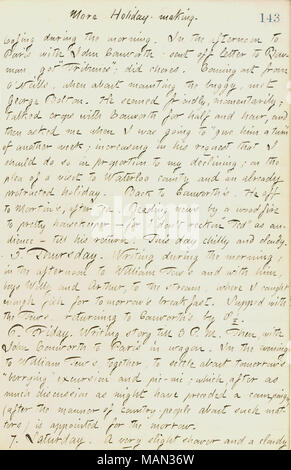 More Holiday-making.
143
loafing during the morning. In the afternoon to
Paris with John Conworth; sent off letter to
man got "Tribunes"; did chores. Coming out from
O'Neills, when about mounting the buggy, met
George Bolton. He seemed friendly, momentarily;
talked crops with Conworth for half and hour, and
then asked me when I was going to "give him a turn"
of another week; increasing in his request that I
should do so in proportion to my declining, on the
plea of a visit to Waterloo county and an already
protracted holiday. Back to Conworth's. He off
to Martin's, after tea. Reading news by a wood fire
to pretty housekeeper — for I don't reckon "Ted" as au-
dience — till his return. This day chilly and cloudy.
5. Thursday. Writing during the morning;
in the afternoon to William Tew's and with him,
boys Willy and Arthur, to the stream, where I caught
enough fish for to-morrow's breakfast. Supped with
the Tews, returning to Conworth's by 8½.
6. Friday. Writing story till 6 P.M. Then, with
John Conworth to Paris in wagon. In the evening
to William Tew's, together, to settle about to-morrow's
"berrying" excursion and pic-nic; which, after as
much discussion as might have preceded a campaign,
(after the manner of country-people about such mat-
ters) is appointed for the morrow.
7. Saturday. A very slight shower and a cloudy
alamy
Image ID: MAN36W
www.alamy.com